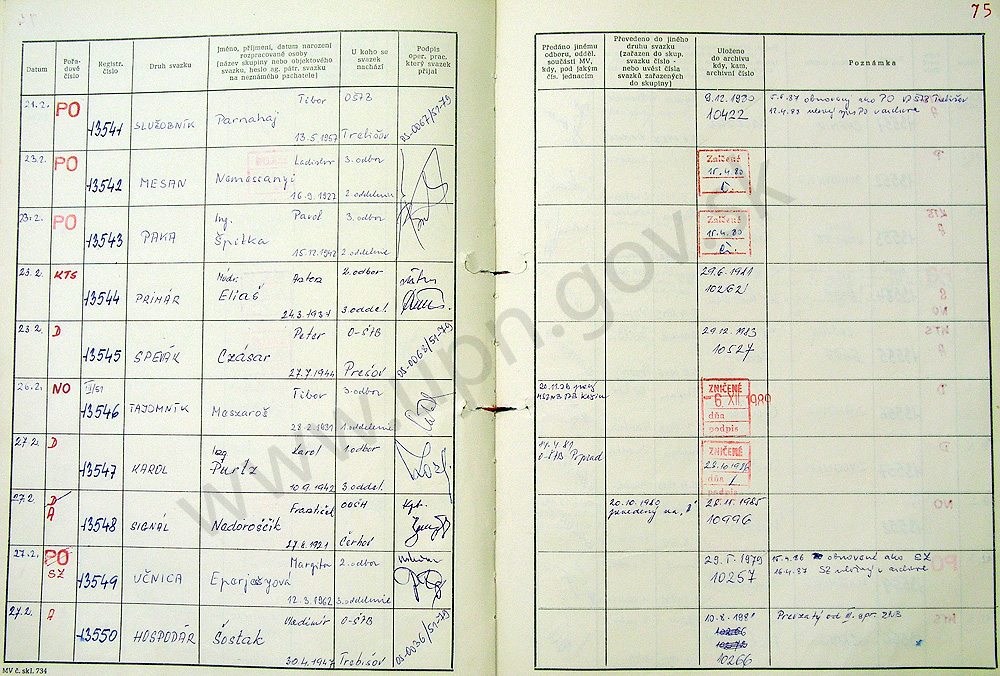 75
Datum
Pořadové číslo
Registr. číslo
Druh svazku
Jméno, příjmení, datum narození
rozpracované osoby
(název skupiny nebo objektového
svazku, heslo ag. pátr. svazku
na neznámého pachatele)
U koho se
svazek
nachází
Podpis
oper. prac.
který svazek
přijal
Předáno jinému
odboru, odděl.
součásti MV,
kdy, pod jakým
čís. jednacím
Převedeno do jiného
druhu svazku
(zařazen do skup.
svazku číslo -
nebo uvést čísla
svazků zařazených
do skupiny)
Uloženo
do archivu
kdy, kam,
archivní číslo
Poznámka
21.2. PO 13541 SLUŽOBNÍK Tibor Parnahaj 13.5.1957 Trebišov OS-0067/51-79
9.12.1980
10422
23.2. PO 13542 MESAN Ladislav 16.9.1927 3. odbor 2. oddelenie
Zničené
15.4.80
23.2. PO 13543 PAKA Ing. Pavol Špitka 3. odbor 2. oddelenie
Zničené
15.4.80
23.2. KTS 13544 PRIMÁR Eliáš 24.3.1931 2. odbor 3. oddel.
29.6.1981
10262
23.2. D 13545 SPEVÁK Peter Czásar 27.7.1944 O-ŠtB Prešov OS-0068/51-79
29.12.1983
10527
26.2. NO 13546 TAJOMNÍK Tibor Maszaroš 28.2.1931 3. odbor 1. oddelenie
ZNIČENÉ
-6. XII. 1989
dňa
podpis
27.2. D 13547 KAROL Ing. Karol Purtz 10.9.1942 1. odbor 3. oddel.
14.4.81
O-ŠtB Poprad
ZNIČENÉ
28.10.1986
dňa
podpis
27.2. D A 13548 SIGNÁL Nadoroščik 27.8.1921 OOČH Čerhov
20.10.1980
28.11.1985
10996
27.2. PO SZ 13549 UČNICA Margita Eperješyová 12.3.1962 2. odbor 3. oddelenie
29.V.1979
10257
15.4.86 obnovené ako SZ
16.4.87 SZ uložený v archíve
27.2. A 13550 HOSPODÁR Vladimír Šostak 30.4.1947 O-ŠtB Trebišov OS-0036/51-79
10.8.1981
10266
MV č. skl. 734
www.upn.gov.sk